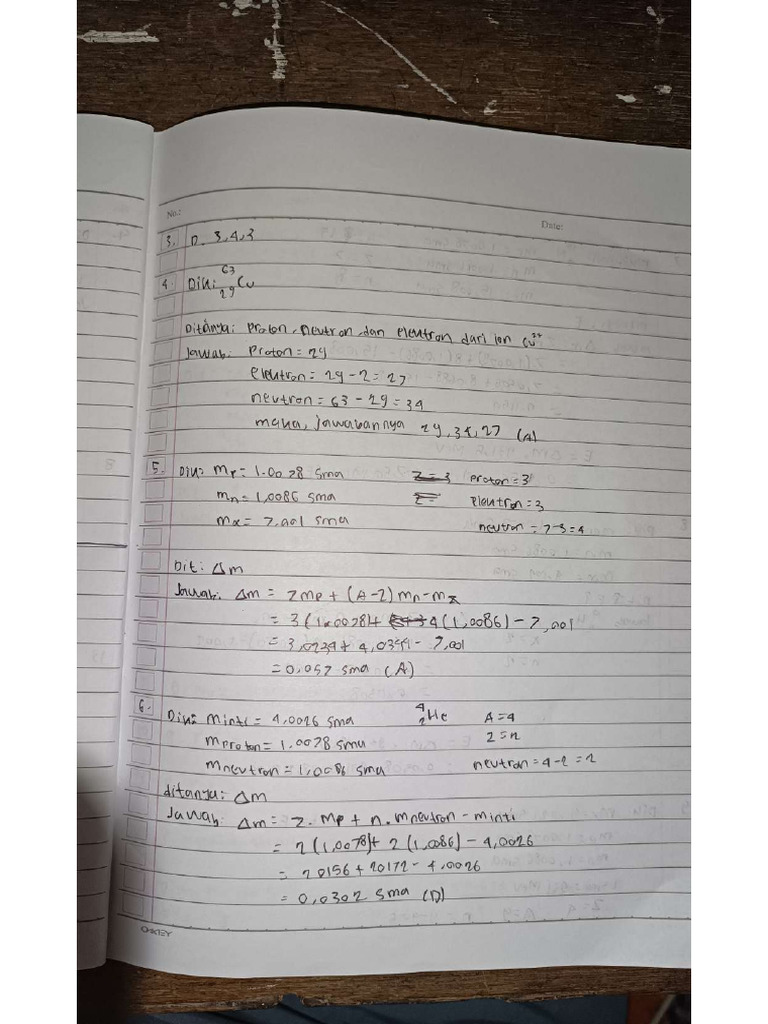 No.:
Date:
3. D. 3,4,3
4. Dik: ⁶³₂₉Cu
Ditanya: Proton, neutron dan elektron dari ion Cu²⁺
Jawab: Proton = 29
elektron = 29 - 2 = 27
neutron = 63 - 29 = 34
maka, jawabannya 29, 34, 27 (A)
5. Dik: mp = 1.0078 sma proton = 3
mn = 1,0086 sma elektron = 3
mx = 7,001 sma neutron = 7-3 = 4
Dit: Δm
Jawab: Δm = Zmp + (A-Z) mn - mx
= 3 (1.0078) + 4 (1,0086) - 7,001
= 3,0234 + 4,0344 - 7,001
= 0,057 sma (A)
6. Dik: minti = 4,0026 sma ⁴₂He A = 4
mproton = 1,0078 sma Z = 2
mneutron = 1,0086 sma neutron = 4-2 = 2
ditanya: Δm
Jawab: Δm = Z. mp + n. mneutron - minti
= 2 (1,0078) + 2 (1,0086) - 4,0026
= 20156 + 20172 - 4,0026
= 0,0302 sma (D)